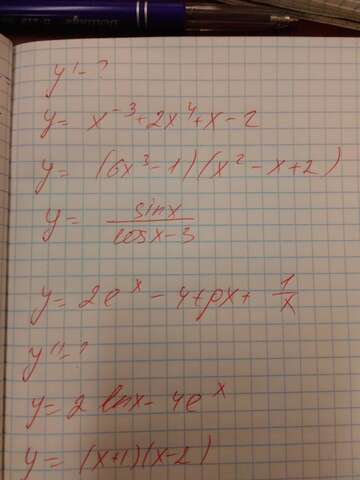 y' - ?
y = x^-3 + 2x^4 + x - 2
y = (6x^3 - 1)(x^2 - x + 2)
y = sinx / cosx - 3
y = 2e^x - 4 + px + 1/x
y'' - ?
y = 2 lnx - 4e^x
y = (x+1)(x-2)